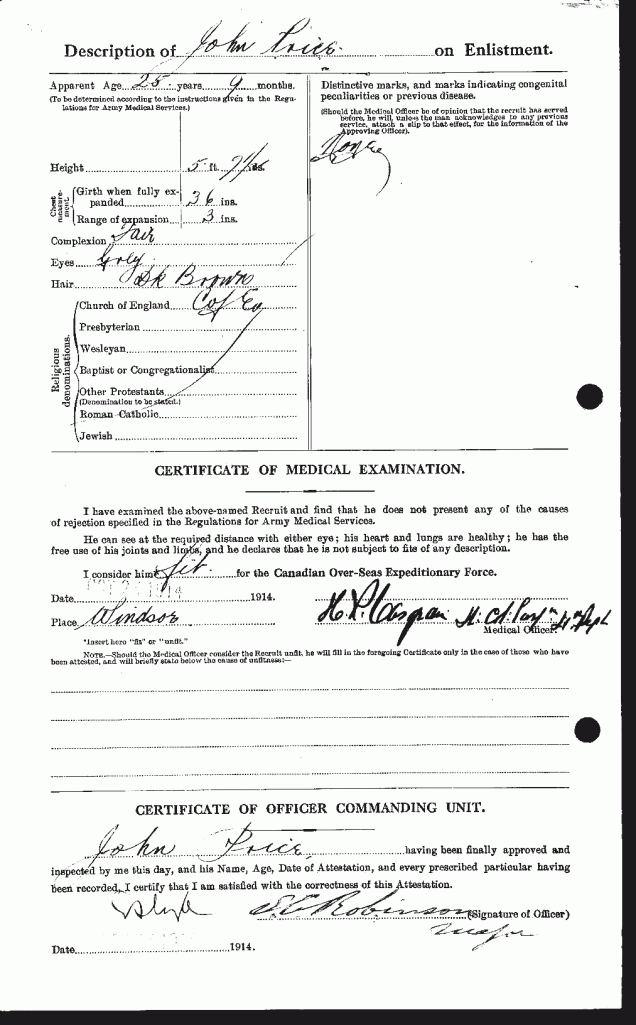 Description of John Price. on Enlistment.
Apparent Age 25 years 9 months.
(To be determined according to the instructions given in the Regulations for Army Medical Services.)
Height 5 ft. ins.
Chest measurement.
Girth when fully expanded 36 ins.
Range of expansion 3 ins.
Complexion Fair
Eyes Grey
Hair Dk Brown
Religious denominations.
Church of England C of E
Presbyterian
Wesleyan
Baptist or Congregationalist
Other Protestants
(Denomination to be stated.)
Roman Catholic
Jewish
Distinctive marks, and marks indicating congenital
peculiarities or previous disease.
(Should the Medical Officer be of opinion that the recruit has served
before, he will, unless the man acknowledges to any previous
service, attach a slip to that effect, for the information of the
Approving Officer).
None
CERTIFICATE OF MEDICAL EXAMINATION.
I have examined the above-named Recruit and find that he does not present any of the causes
of rejection specified in the Regulations for Army Medical Services.
He can see at the required distance with either eye; his heart and lungs are healthy; he has the
free use of his joints and limbs, and he declares that he is not subject to fits of any description.
I consider him* fit for the Canadian Over-Seas Expeditionary Force.
Date 1914.
Place Windsor
Medical Officer.
*Insert here "fit" or "unfit."
NOTE.—Should the Medical Officer consider the Recruit unfit, he will fill in the foregoing Certificate only in the case of those who have
been attested, and will briefly state below the cause of unfitness:—
CERTIFICATE OF OFFICER COMMANDING UNIT.
John Price having been finally approved and
inspected by me this day, and his Name, Age, Date of Attestation, and every prescribed particular having
been recorded, I certify that I am satisfied with the correctness of this Attestation.
Robinson (Signature of Officer)
Major
Date 1914.